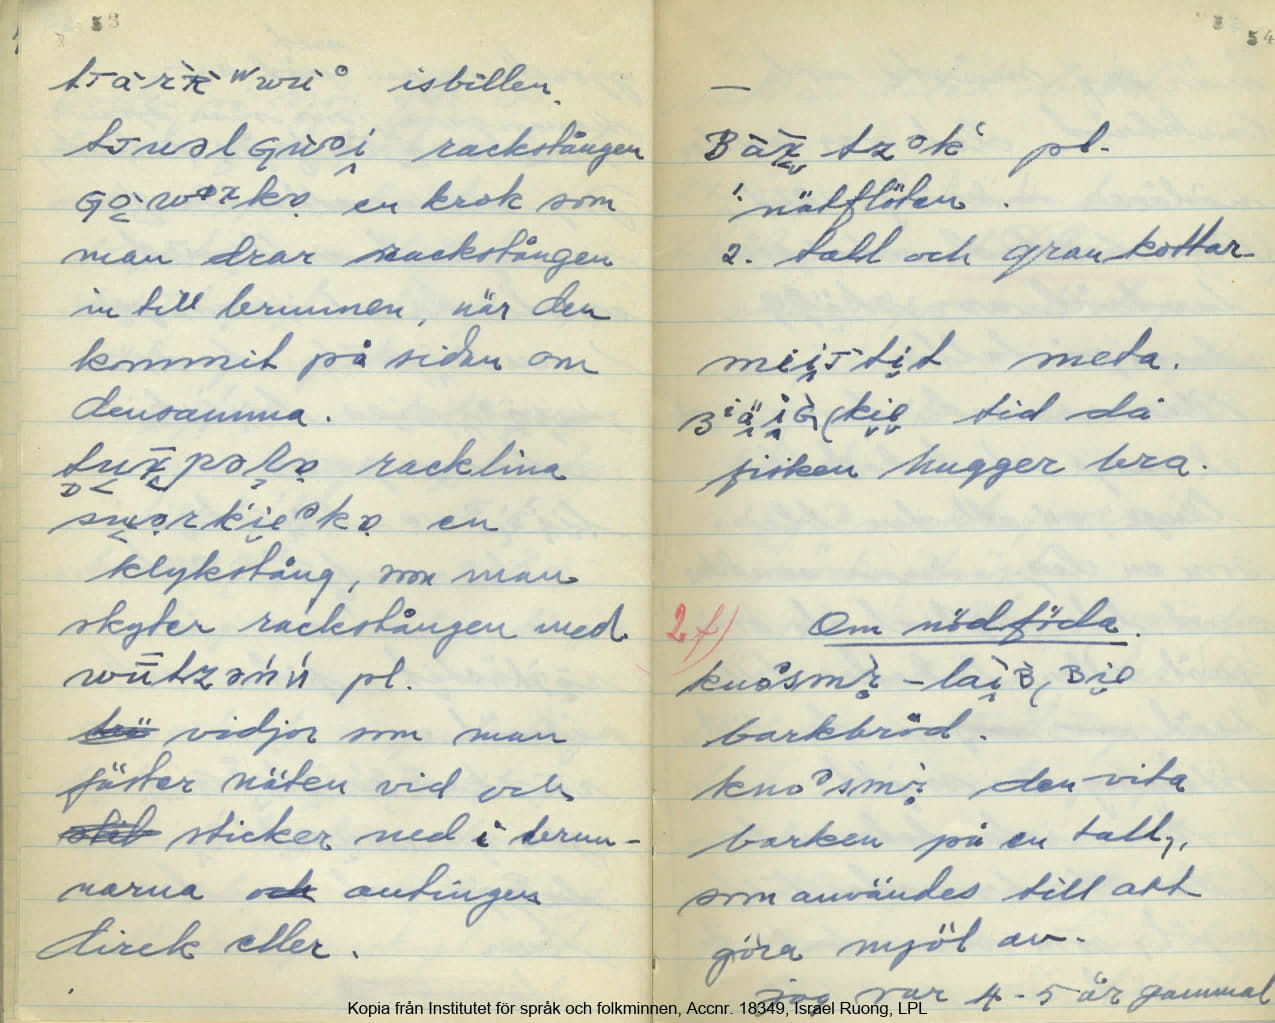 53
isbillen
rackstången
en krok som
man drar rackstången
in till brunnen, när den
kommit på sidan om
densamma.
racklina
en
klykstång, som man
skyter rackstången med
pl.
vidjor som man
fäster näten vid och
sticker ned i brun-
narna och antingen
direk eller.
54
—
pl.
1. nätflöten.
2. tall och grankottar
meta.
tid då
fisken hugger bra.
2f) Om nödföda.
barkbröd.
den vita
barken på en tall,
som användes till att
göra mjöl av.
jag var 4-5 år gammal
Kopia från Institutet för språk och folkminnen, Accnr. 18349, Israel Ruong, LPL